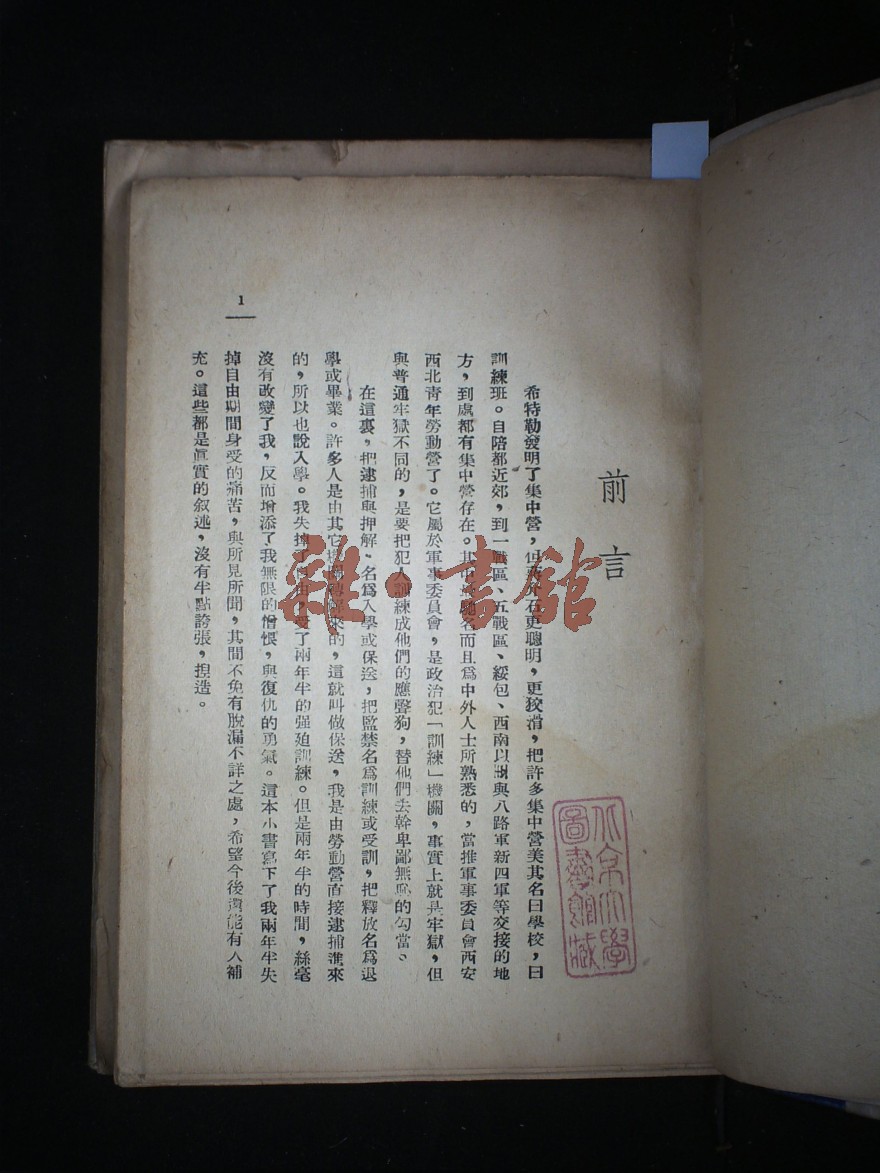 前言
希特勒發明了集中營，但蔣介石更聰明，更狡滑，把許多集中營美其名曰學校，曰
訓練班。自陪都近郊，到一戰區、五戰區、綏包、西南以及與八路軍新四軍等交接的地
方，到處都有集中營存在。其中最馳名而且爲中外人士所熟悉的，當推軍事委員會西安
西北青年勞動營了。它屬於軍事委員會，是政治犯「訓練」機關，事實上就是牢獄，但
與普通牢獄不同的，是要把犯人訓練成他們的應聲狗，替他們去幹卑鄙無恥的勾當。
在這裏，把逮捕與押解、名爲入學或保送，把監禁名爲訓練或受訓，把釋放名爲退
學或畢業。許多人是由其它機關轉解來的，這就叫做保送，我是由勞動營直接逮捕進來
的，所以也說入學。我失掉了自由，受了兩年半的强迫訓練。但是兩年半的時間，絲毫
沒有改變了我，反而增添了我無限的憎恨，與復仇的勇氣。這本小書寫下了我兩年半失
掉自由期間身受的痛苦，與所見所聞，其間不免有脫漏不詳之處，希望今後還能有人補
充。這些都是眞實的叙述，沒有半點誇張，揑造。
1
雜·書館
北京大學
圖書館藏